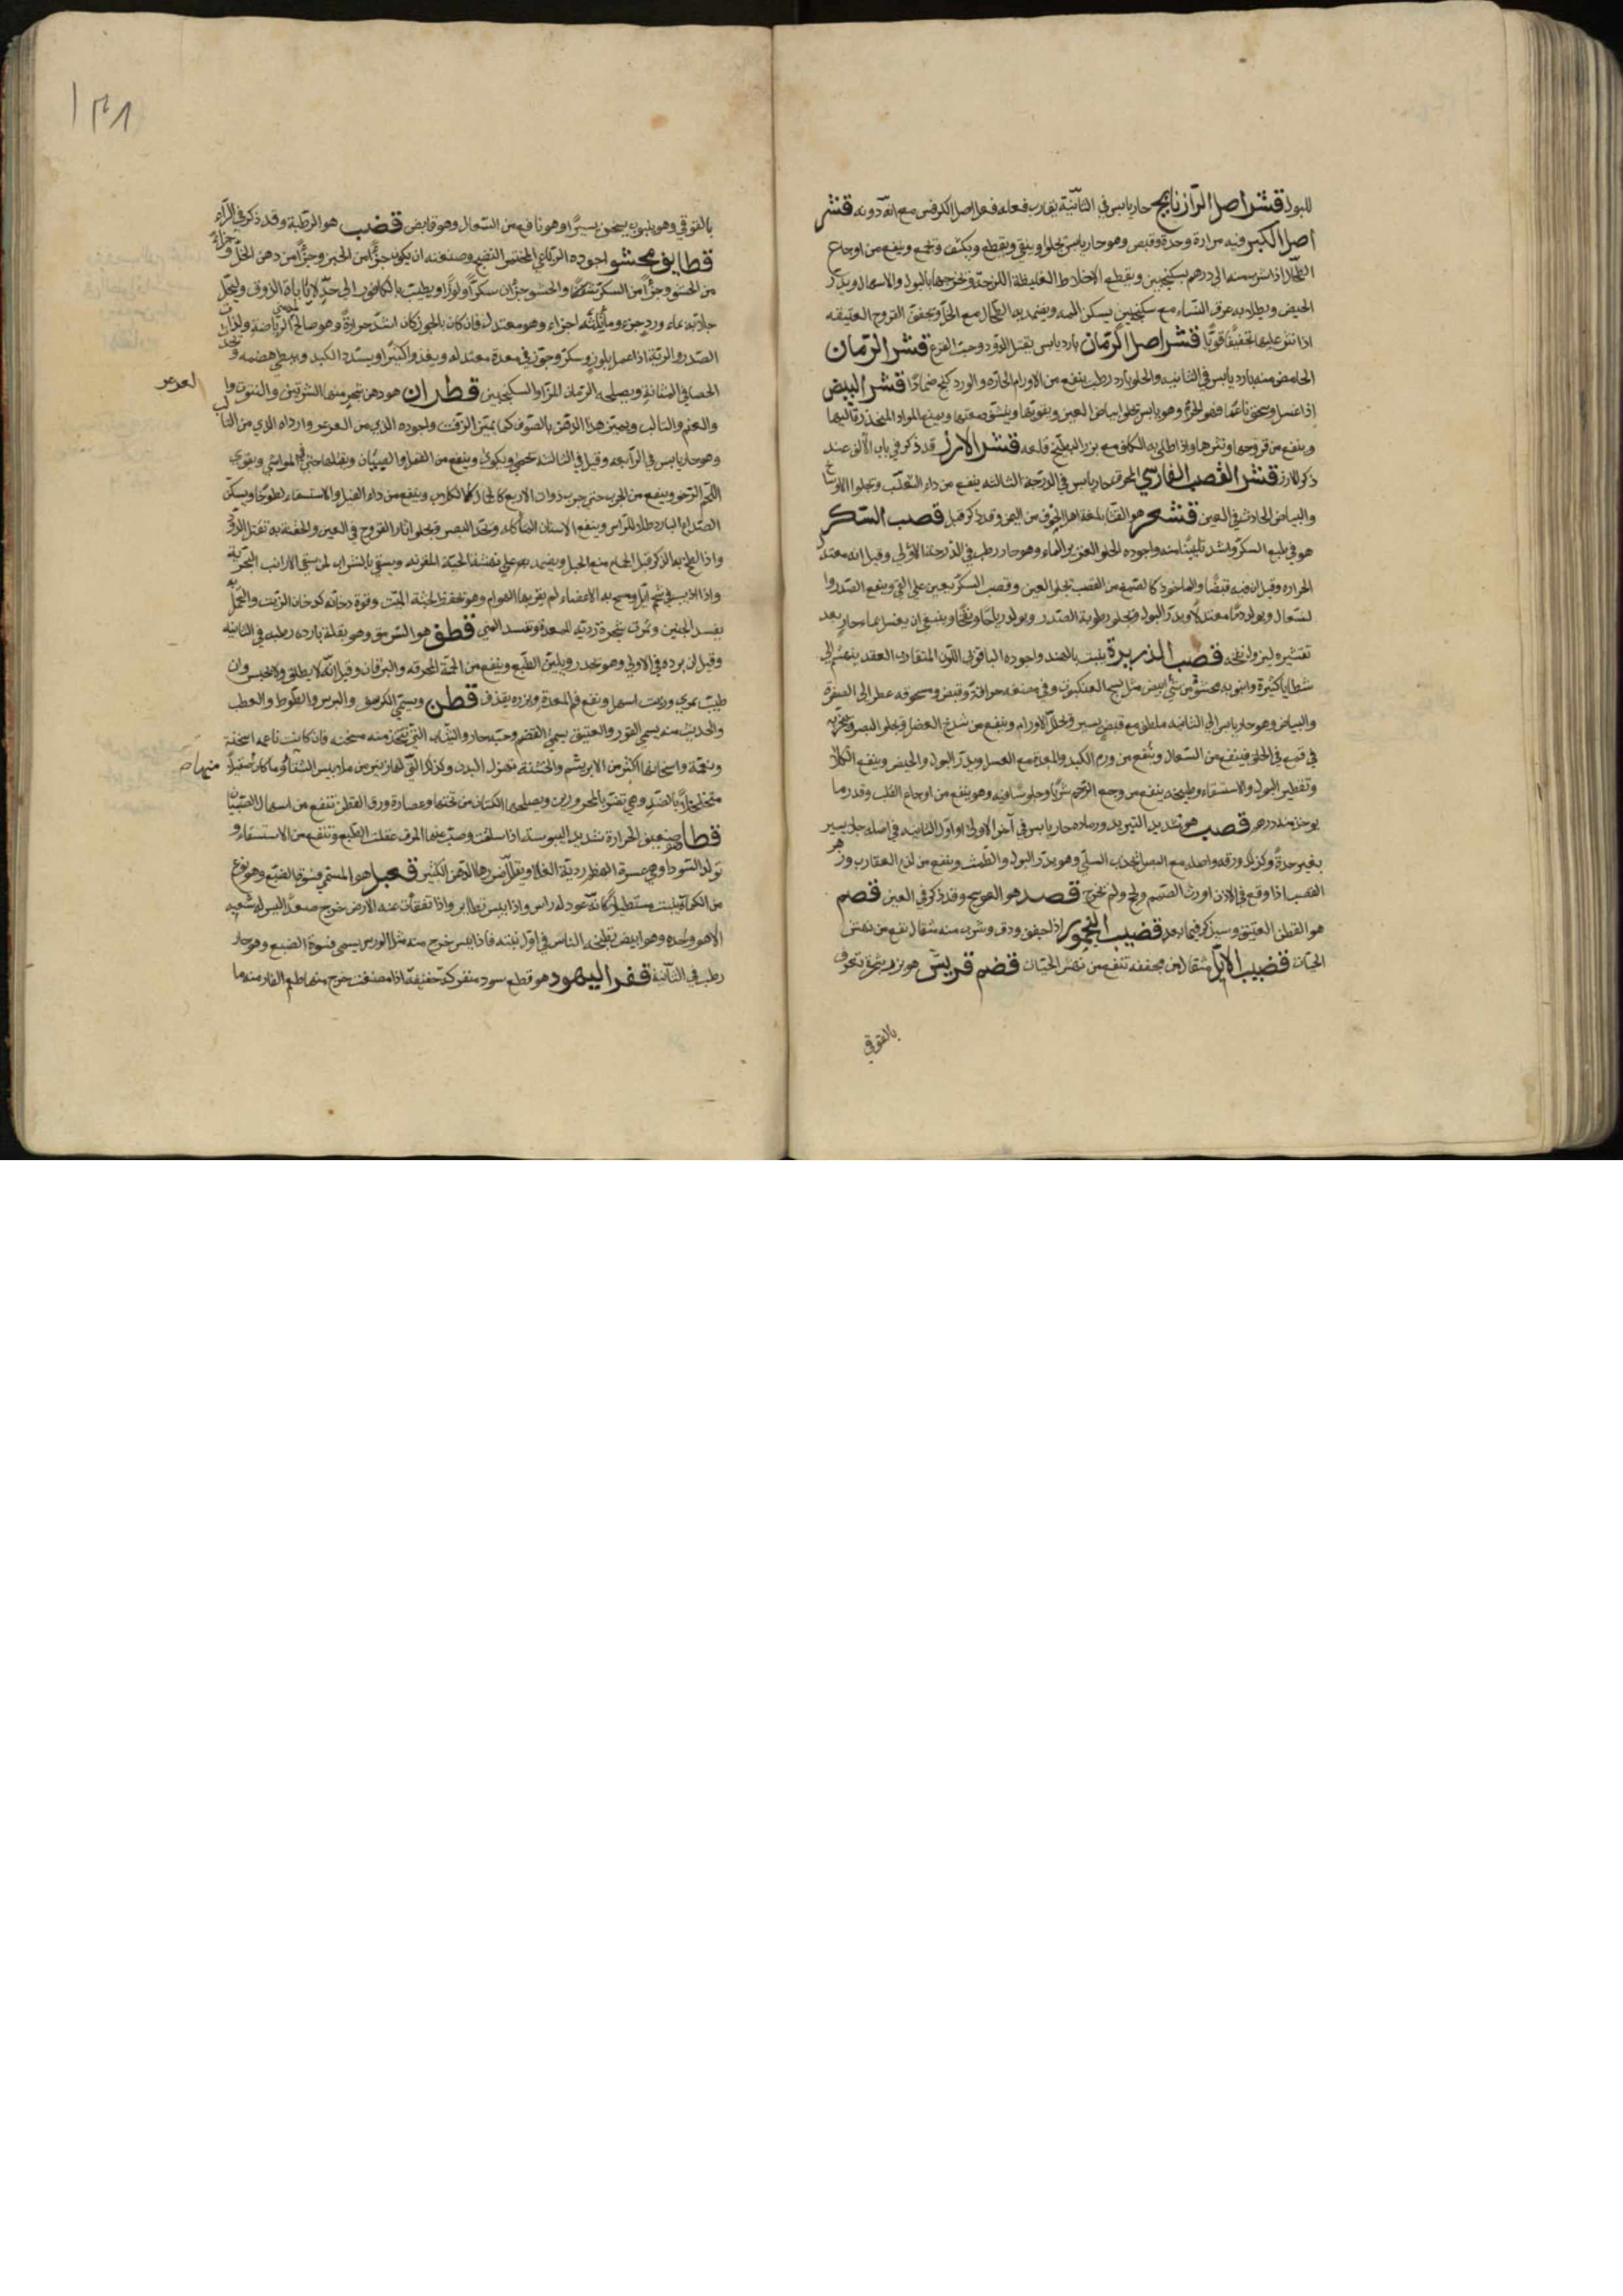 للبول قشر اصل الرازيانج حار يابس في الثانية يقارب فعله فعل اصل الكرفس مع انه دونه قشر
اصل الكبر فيه مرارة وحدة وقبض وهو حار يابس يجلو وينقي ويقطع ويكثف وينفع من اوجاع
الطحال اذا شرب منه الى درهم بسكنجبين ويقطع الاخلاط الغليظة اللزجة ويخرجها بالبول والاسهال ويدر
الحيض ويطلا به عرق النساء مع سكنجبين يسكن المه ويضمد به الطحال مع الخل ويجفف القروح العتيقه
اذا نثر عليها تجفيفا قويا قشر اصل الرمان بارد يابس يقتل الدود وحب القرع قشر الرمان
الحامض منه بارد يابس في الثانيه والحلو بارد رطب ينفع من الاورام الحاره والورد كنج ضمادا قشر البيض
اذا غسل وسحق ناعما فهو الخرم وهو يابس يجلو بياض العين ويقويها وينشف دمعتها ويمنع المواد المنحدرة اليها
وينفع من قروحها وبثرها واذا طلي به الكلف مع بزر البطيخ قلعه قشر الارز قد ذكر في باب الالف عند
ذكر الارز قشر القصب الفارسي المحرق حار يابس في الدرجة الثالثه ينفع من داء الثعلب ويجلو الاوساخ
والبياض الحادث في العين قشعر هو القثا بلغة اهل الجوف من اليمن وقد ذكر قبل قصب السكر
هو في طبع السكر واشد تليينا منه واجوده الحلو الغزير الماء وهو حار رطب في الدرجة الاولى وقيل انه معتدل
الحراره وقيل ان فيه قبضا والماخوذ كالصمغ من القصب يجلو العين وقصب السكر يعين على القي وينفع الصدر وا
لسعال ويولد دما معتدلا ويدر البول ويجلو رطوبة الصدر ويولد رياحا ونفخا وينبغي ان يغسل بماء حار بعد
تقشيره ليزول نفخه قصب الذريرة ينبت بالهند واجوده الياقوتي اللون المتقارب العقد ينهشم الى
شظايا كثيرة وانبوبه محشو من شي ابيض مثل نسج العنكبوت وفي مضغه حرافة وقبض ومسحوقه عطر الى الصفرة
والبياض وهو حار يابس الى الثانيه ملطف مع قبض يسير ويحلل الاورام وينفع من شدخ العضل ويجلو البصر ويتبخر به
في قمع في الحلق فينفع من السعال وينفع من ورم الكبد والمعدة مع العسل ويدر البول والحيض وينفع الكلا
وتقطير البول والاستسقاء وطبيخه ينفع من وجع الرحم شربا وجلوسا فيه وهو ينفع من اوجاع القلب وقدر ما
يوخذ منه درهم قصب هو شديد التبريد ورماده حار يابس في آخر الاولى او اول الثانيه في اصله جلا يسير
بغير حدة وكذلك ورقه واصله مع البصل يجذب السلي وهو يدر البول والطمث وينفع من لدغ العقارب وزهر
القصب اذا وقع في الاذن اورث الصمم ولحج ولم يخرج قصد هو العوسج وقد ذكر في العين قصم
هو القطن العتيق وسيذكر فيما بعد قضيب العجور اذا جفف ودق وشرب منه مثقال نفع من نهش
الحيات قضيب الايل مثقال من مجففه تنفع من نهش الحيات قضم قريش هو بزر شجرة تعرف
بالفوقي
بالفوقي وهو ينبوب يسخن يسيرا وهو نافع من السعال وهو قابض قضب هو الرطبة وقد ذكر في الراء
قطايف محشو اجوده الرقاعي المختمر النضيج وصنعته ان يكون جزا من الخبز وجزا من دهن الخل وجزا
من الحشو وجزا من السكر والحشو جزان سكرا ولوزا ويطيب بالكافور الى حد لا يابا الذوق وليجعل
جلابه بماء ورد جزء وما ثلثة اجزاء وهو معتدل فان كان بالجوز كان اشد حرارة وهو صالح لمدمني الرياضة ولذات
الصدر والرية اذا عمل بلوز وسكر وجود في معدة معتدله ويغذو اكثيرا ويسدد الكبد ويبطي هضمه ويجد
الحصا في المثانة ويصلحه الرمان المز او السكنجبين قطران هو دهن شجر منها الشربين والتنوب وا
لعرعر
والعتم والتالب ويميز هذا الدهن بالصوف كما يميز الزفت واجوده الذي من العرعر وارداه الذي من التالب
وهو حار يابس في الرابعه وقيل في الثالثه يسخن ويكوي وينفع من القمل والصيبان ويقتلها حتى في المواشي ويقوي
اللحم الرخو وينفع من الجرب حتى جرب ذوات الاربع كالجمال والكلاب وينفع من داء الفيل والاستسقاء لطوخا ويسكن
الصداع البارد طلا للراس وينفع الاسنان المتأكله ويحد البصر ويجلو اثار القروح في العين والحقنة به تقتل الدود
واذا لطخ به الذكر قبل الجماع منع الحبل ويضمد به على نهشة الحية المقرنه ويسقي بالشراب لمن سقي الارانب البحرية
واذا اذيب في شحم ايل ومسح به الاعضاء لم يقربها الهوام وهو يحفظ الجثة الميت وقوة دخانه كدخان الزيت والتحمل به
يفسد الجنين وثمرة شجرة ردية للمعدة وتفسد المني قطف هو السرمق وهو بقلة بارده رطبه في الثانيه
وقيل ان برده في الاولى وهو تخدر ويلين الطبع وينفع من الحمة المحرقه واليرقان وقيل انه لا يطلق ولا يحبس وان
طيب بمري وزيت اسهل ونفع فم المعدة وبزره يقذف قطن ويسمى الكرسف والبرس والطوط والعطب
والحديث منه يسمى القور والعتيق يسمى القضم وحبه حار والثياب التي تتخذ منه مسخنه فان كانت ناعمه اسخنة
ونعمة واسخانها اكثر من الابريشم والخشنة تهزل البدن وكذلك التي لها زيبر من ملابس الشتا وما كان منها صقيلا
متخلخلا بالضد وهي تضر بالمحرورين ويصلحها الكتان من تحتها وعصارة ورق القطن تنفع من اسهال الصبيان
قطا هو ضعيف الحرارة شديد اليبوسة اذا سلقت وصب عنها المرق عقلت الطبع وتنفع من الاستسقاء و
تولد السودا وهي عسرة الهضم ردية الغذا ويقلل ضررها الدهن الكثير قعبل هو المسمى فسوة الضبع وهو نوع
من الكماة ينبت مستطيلا كانه عود له راس واذا يبس تطاير واذا تفقأت عنه الارض خرج صعدا ليس له شعبه
الا هو واحده وهو ابيض تطبخه الناس في اول نبته فاذا يبس خرج منه مثل الورس يسمى فسوة الضبع وهو حار
رطب في الثانية قفر اليهود هو قطع سود متفركة خفيفة اذا مضغت خرج منها طعم القار منه ما